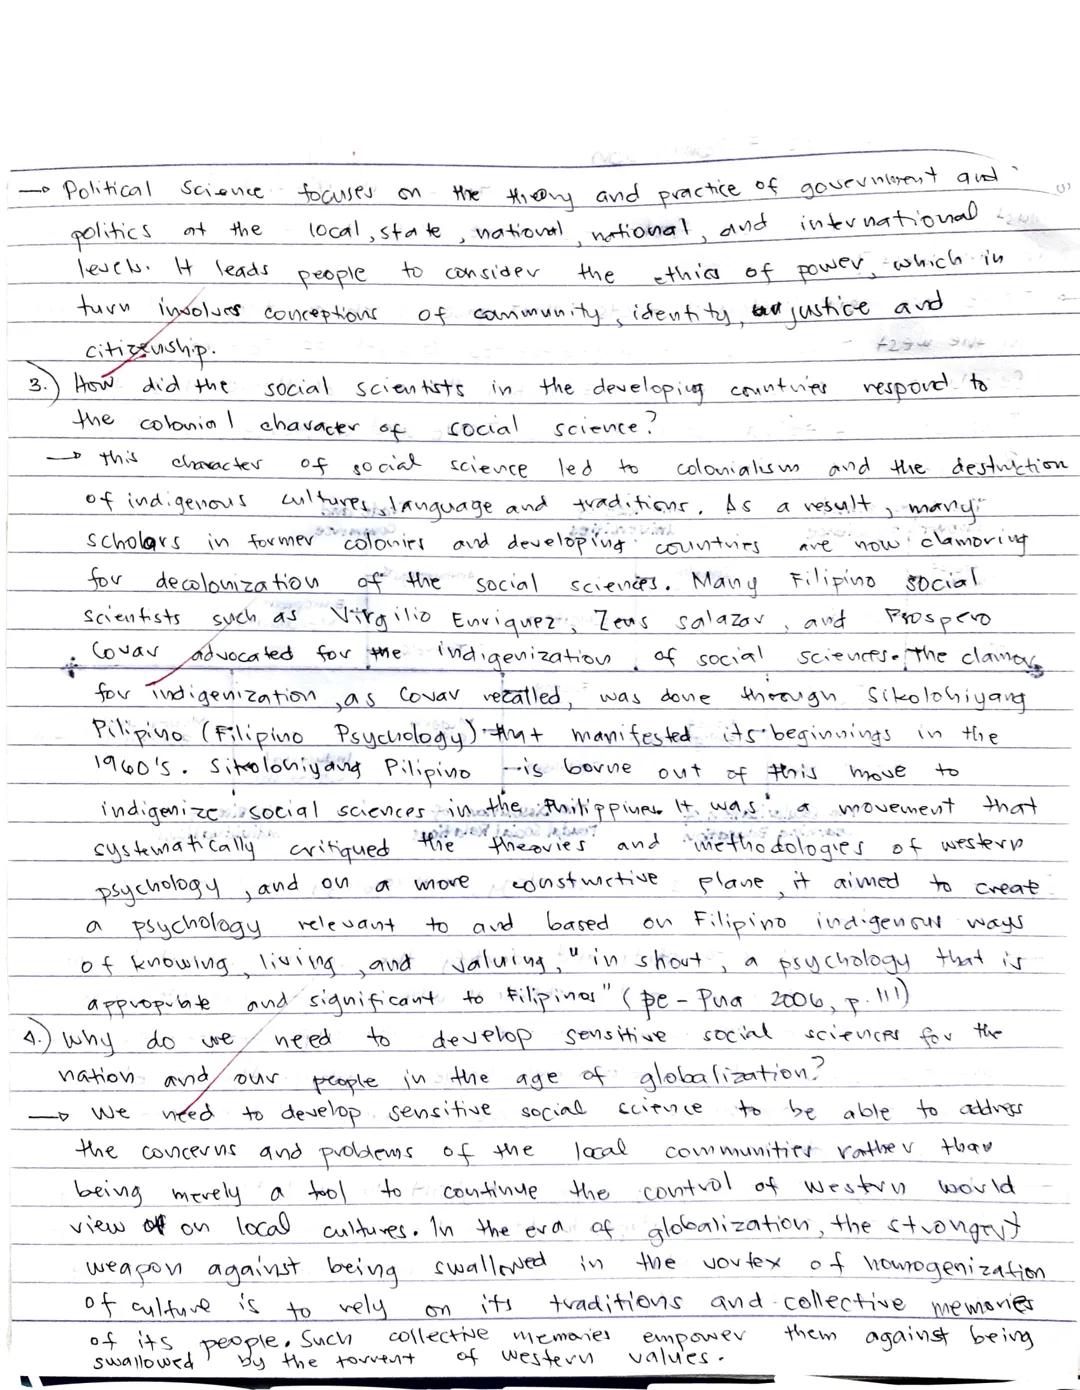 → Political Science focuses on the theory and practice of government and
politics at the local, state, national, national, and international
levels. It leads people to consider the ethics of power, which in
turn involves conceptions of community, identity, justice and
citizenship.
3.) How did the social scientists in the developing countries respond to
the colonial character of social science?
→ this character of social science led to colonialism and the destruction
of indigenous cultures, language and traditions. As a result, many
scholars in former colonies and developing countries are now clamoring
for decolonization of the social sciences. Many Filipino social
scientists such as Virgilio Enriquez, Zeus Salazar, and Prospero
Covar advocated for the indigenization of social sciences. The clamor
for indigenization, as Covar recalled, was done through Sikolohiyang
Pilipino (Filipino Psychology) that manifested its beginnings in the
1960's. Sikolohiyang Pilipino is borne out of this move to
indigenize social sciences in the Philippines. It was a movement that
systematically critiqued the theories and methodologies of western
psychology, and on a more constructive plane, it aimed to create
a psychology relevant to and based on Filipino indigenous ways
of knowing, living, and valuing, "in short, a psychology that is
appropriate and significant to Filipinos" (pe-Pua 2006, p.111)
4.) Why do we need to develop sensitive social sciences for the
nation and our people in the age of globalization?
→ We need to develop sensitive social science to be able to address
the concerns and problems of the local communities rather than
being merely a tool to continue the control of western world
view on local cultures. In the era of globalization, the strongest
weapon against being swallowed in the vortex of homogenization
of culture is to rely on its traditions and collective memories
of its people. Such collective memories empower them against being
swallowed by the torrent of western values.